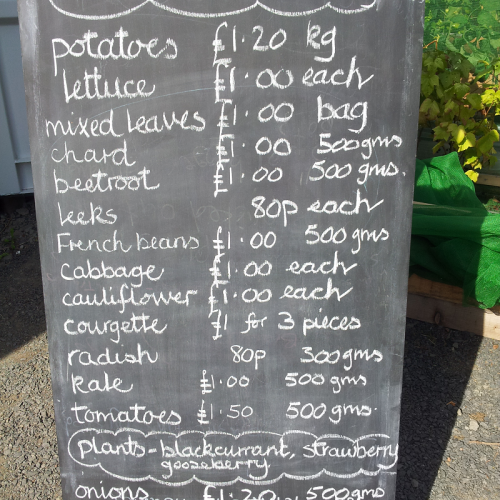 potatoes £1.20 kg
lettuce £1.00 each
mixed leaves £1.00 bag
chard £1.00 500gms
beetroot £1.00 500gms.
leeks 80p each
French beans £1.00 500gms
cabbage £1.00 each
cauliflower £1.00 each
courgette £1 for 3 pieces
radish 80p 300gms
kale £1.00 500gms
tomatoes £1.50 500gms.
plants - blackcurrant, strawberry
gooseberry
onions £1.20 500gms